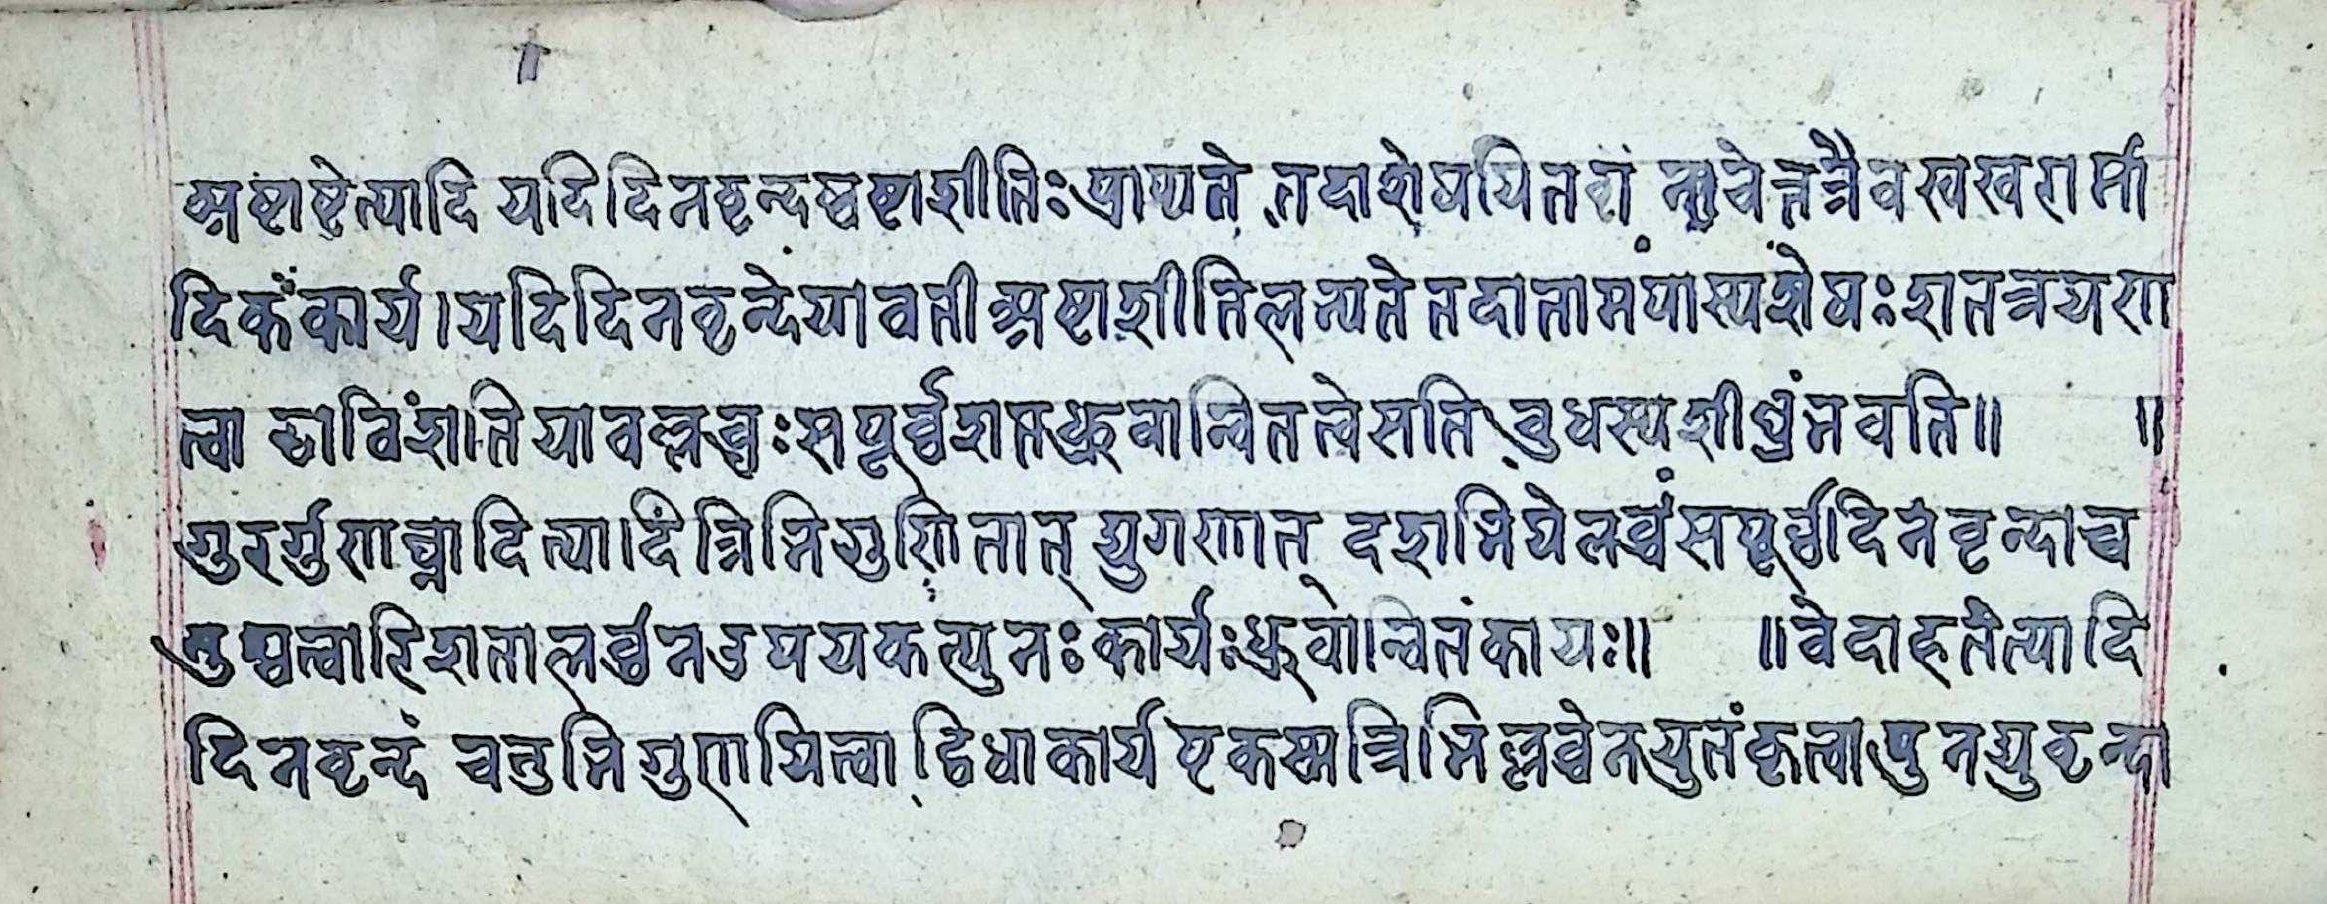 अष्टाष्टेत्यादि यदि दिनवृन्दस्वष्टाशीतिः प्राप्यते तदा शेषयितव्यं न चेत्तत्रैव खखगर्मा
दिकं कार्य । यदि दिनवृन्दे यावती अष्टाशीति लभ्यते तदा तामपास्य शेषः शतत्रयगा
त्वा छाविंशति यावल्लब्धः स पूर्व्वशप्तध्रुवान्वितत्वे सति बुधस्य शीघ्रं भवति ॥ ॥
गुरर्गुणाघ्नादित्यादि त्रिभिगुणितात् द्युगणात् दशभि ये लब्धं स पूर्व्वदिनवृन्दाच्च
तुश्चत्वारिशता लब्धेन उपयकत्पुनः कार्यः ध्रुवान्वितं कायः ॥ ॥ वेदाहतेत्यादि
दिनवृन्दं चतुभिगुणयित्वा द्विधा कार्य एकस्मात्रिभिल्लब्धेन युतं कृत्वा पुनद्युवृन्दा